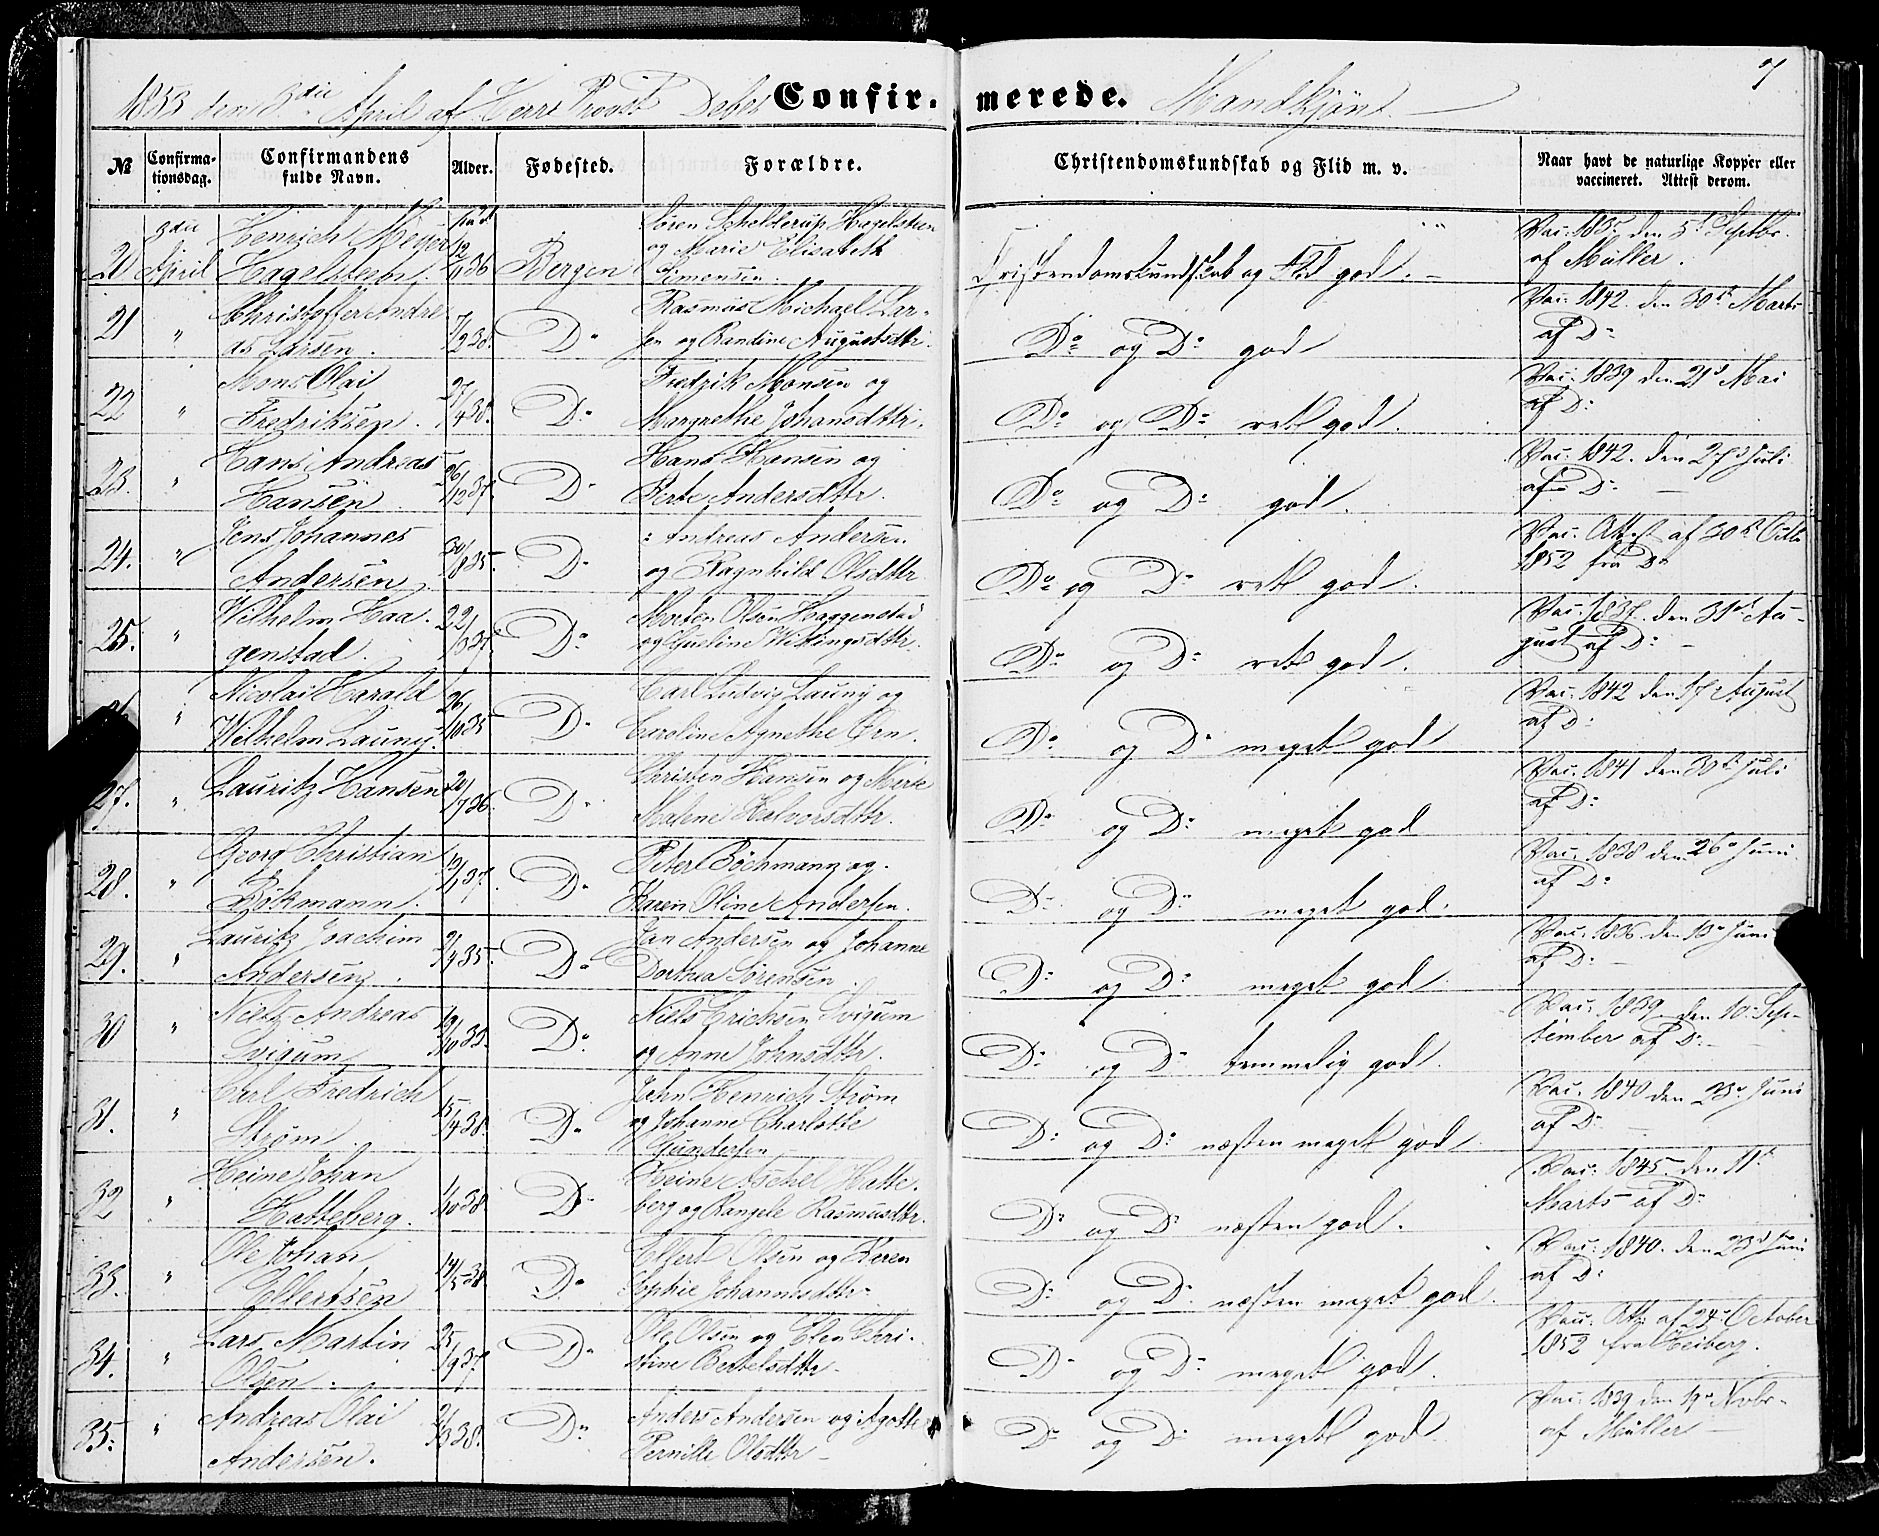 1853 den 3die April af Herr Provst Debes Confir- merede. Mandkjøn. 7
№ Confirma-tionsdag. Confirmandens fulde Navn. Alder. Fødested. Forældre. Christendomskundskab og Flid m. v. Naar havt de naturlige Kopper eller vaccineret. Attest derom.
3die Henrich Meyer Født Søren Schelderup Hagelsteen Vac. den 5t Septbr.
20 April Hagelsteen. 12/1 36 Bergen og Marie Elisabeth Simonsen. Cristendomskundskab og Flid god. af Müller.
21 " Christoffer Andreas Larsen. 7/2 38. Do Rasmus Michael Larsen og Randine Augustsdtr. Do og Do god Vac. 1842. den 30te Marts af Do
22 " Mons Olai Fredriksen. 27/4 38. Do Fredrik Monsen og Margrethe Johansdttr. Do og Do ret god. Vac. 1839 den 21d Mai af Do
23. " Hans Andreas Hansen 26/12 37. Do Hans Hansen og Berte Andersdttr. Do og Do god. Vac. 1842. den 27d Juli af Do
24. " Jens Johannes Andersen 30/8 35. Do Andreas Andersen og Ragnhild Olsdttr. Do og Do ret god. Vac. Att. af 30te Octb 1852 fra Do
25. " Wilhelm Haagenstad. 22/3 37. Do Morten Olsen Haggenstad og Wittingsdttr. Do og Do ret god. Vac. 1837. den 31te August af Do
" Nicolai Harald Wilhelm Launy. 26/10 35 Do Carl Ludvig Launy og Caroline Agnethe Do og Do meget god Vac. 1842 den 17 August af Do
27. " Lauritz Hansen 20/7 36. Do Christen Hansen og Malene Halvorsdttr. Do og Do meget god Vac. 1841 den 30te Juli af Do
28. " Georg Christian Bökmann. 12/1 37. Do Peter Böchmann og Karen Oline Andersen. Do og Do meget god. Vac. 1838 den 26d Juni af Do
29. " Lauritz Joachim Andersen. 2/4 35. Do Jan Andersen og Johanne Dorthea Sørensen. Do og Do meget god Vac. 1836. den 18d Juni af Do
30 " Niels Andreas Svigum Do Niels Erichsen Svigum og Anne Johnsdttr. Do og Do temmelig god. Vac. 1839. den 10. September af Do
31. " Carl Fredrich Strøm. 15/4 38. Do Jahn Henrich Strøm og Johanne Charlotte Gundersen Do og Do næsten meget god Vac. 1840 den 23d Juni af Do
32 " Heine Johan Hatteberg. 1/10 38 Do Heine Aschel Hatteberg og Rangele Rasmusdttr. Do og Do næsten god. Vac. 1845. den 11t Marts af Do
33. " Ole Johan Ellertsen 14/5 38 Do Ellert Olsen og Karen Sophie Johannesdttr. Do og Do næsten meget god. Vac. 1840. den 23d Juni af Do
34. " Lars Martin Olsen. 25/9 37. Do Ole Olsen og Elen Christine Bertelsdttr Do og Do meget god. Vac. Att. af 24. October 1852 fra Heiberg.
35. " Andreas Olai Andersen. 21/3 38. Do Anders Andersen og Agathe Pernille Olsdttr Do og Do meget god Vac. 1839 den 19. Novbr. af Müller